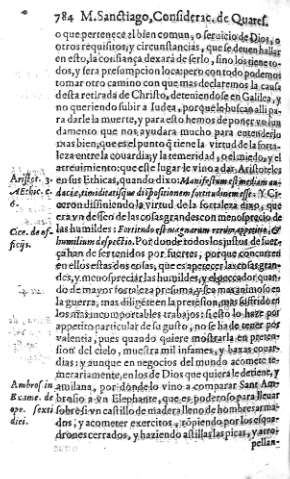 784 M. Sanctiago, Considerac. de Quares.
o que pertenece al bien comun, o servicio de Dios, o
otros requisitos, y circunstancias, que se deven hallar
en esto, la confiança dexará de serlo, sino los tiene to-
dos, y sera presumpcion loca: pero con todo podemos
tomar otro camino con que mas declaremos la causa
desta retirada de Christo, deteniendose en Galilea, y
no queriendo subir a Iudea, porque le buscan alli pa-
ra darle la muerte, y para esto hemos de poner un fun
damento que nos ayudara mucho para entenderlo
mas bien, que es el punto q̃ tiene la virtud de la forta-
leza entre la couardia, y la temeridad, o el miedo, y el
atreuimiento: que este lugar le vino a dar Aristoteles
Aristot. 3. en sus Ethicas, quando dixo: Manifestum est mediam au-
AEthic. c. daciæ, timiditatisque dispositionem fortitudinem esse: Y Ci-
6. ceron difiniendo la virtud de la fortaleza dixo, que
era vn deseo de las cosas grandes con menosprecio de
Cice. de of- las humildes: Fortitudo est magnarum rerum appetitio, &
ficijs. humilium despectio. Por donde todos los justos de
çahan de ser tenidos por fuertes, porque concurren
en ellos estas dos cosas, que es apetecer las cosas gran-
des, y menospreciar las humildes, y el pecador quan-
do de mayor fortaleza presuma, y sea mas animoso en
la guerra, mas diligẽte en la pretẽsion, mas sufrido en
los mas incomportables trabajos: si esto lo haze por
appetito particular de su gusto, no se ha de tener por
valentia, pues quando quiere mostrarla en preten-
sion del cielo, muestra mil infames, y baxas couar-
dias: y aunque en negocios del mundo acomete te-
merariamente, en los de Dios que quiera le detiene, y
Ambros. in amilana, por donde lo vino a comparar Sant Am-
Exame. de brosio a vn Elephante, que es poderoso para lleuar
ope. sexti sobre si vn castillo de madera lleno de hombres arma-
diei. dos, y acometer exercitos, rõpiendo por los esqua-
drones cerrados, y haziendo astillas las picas, y atro-
pellan-